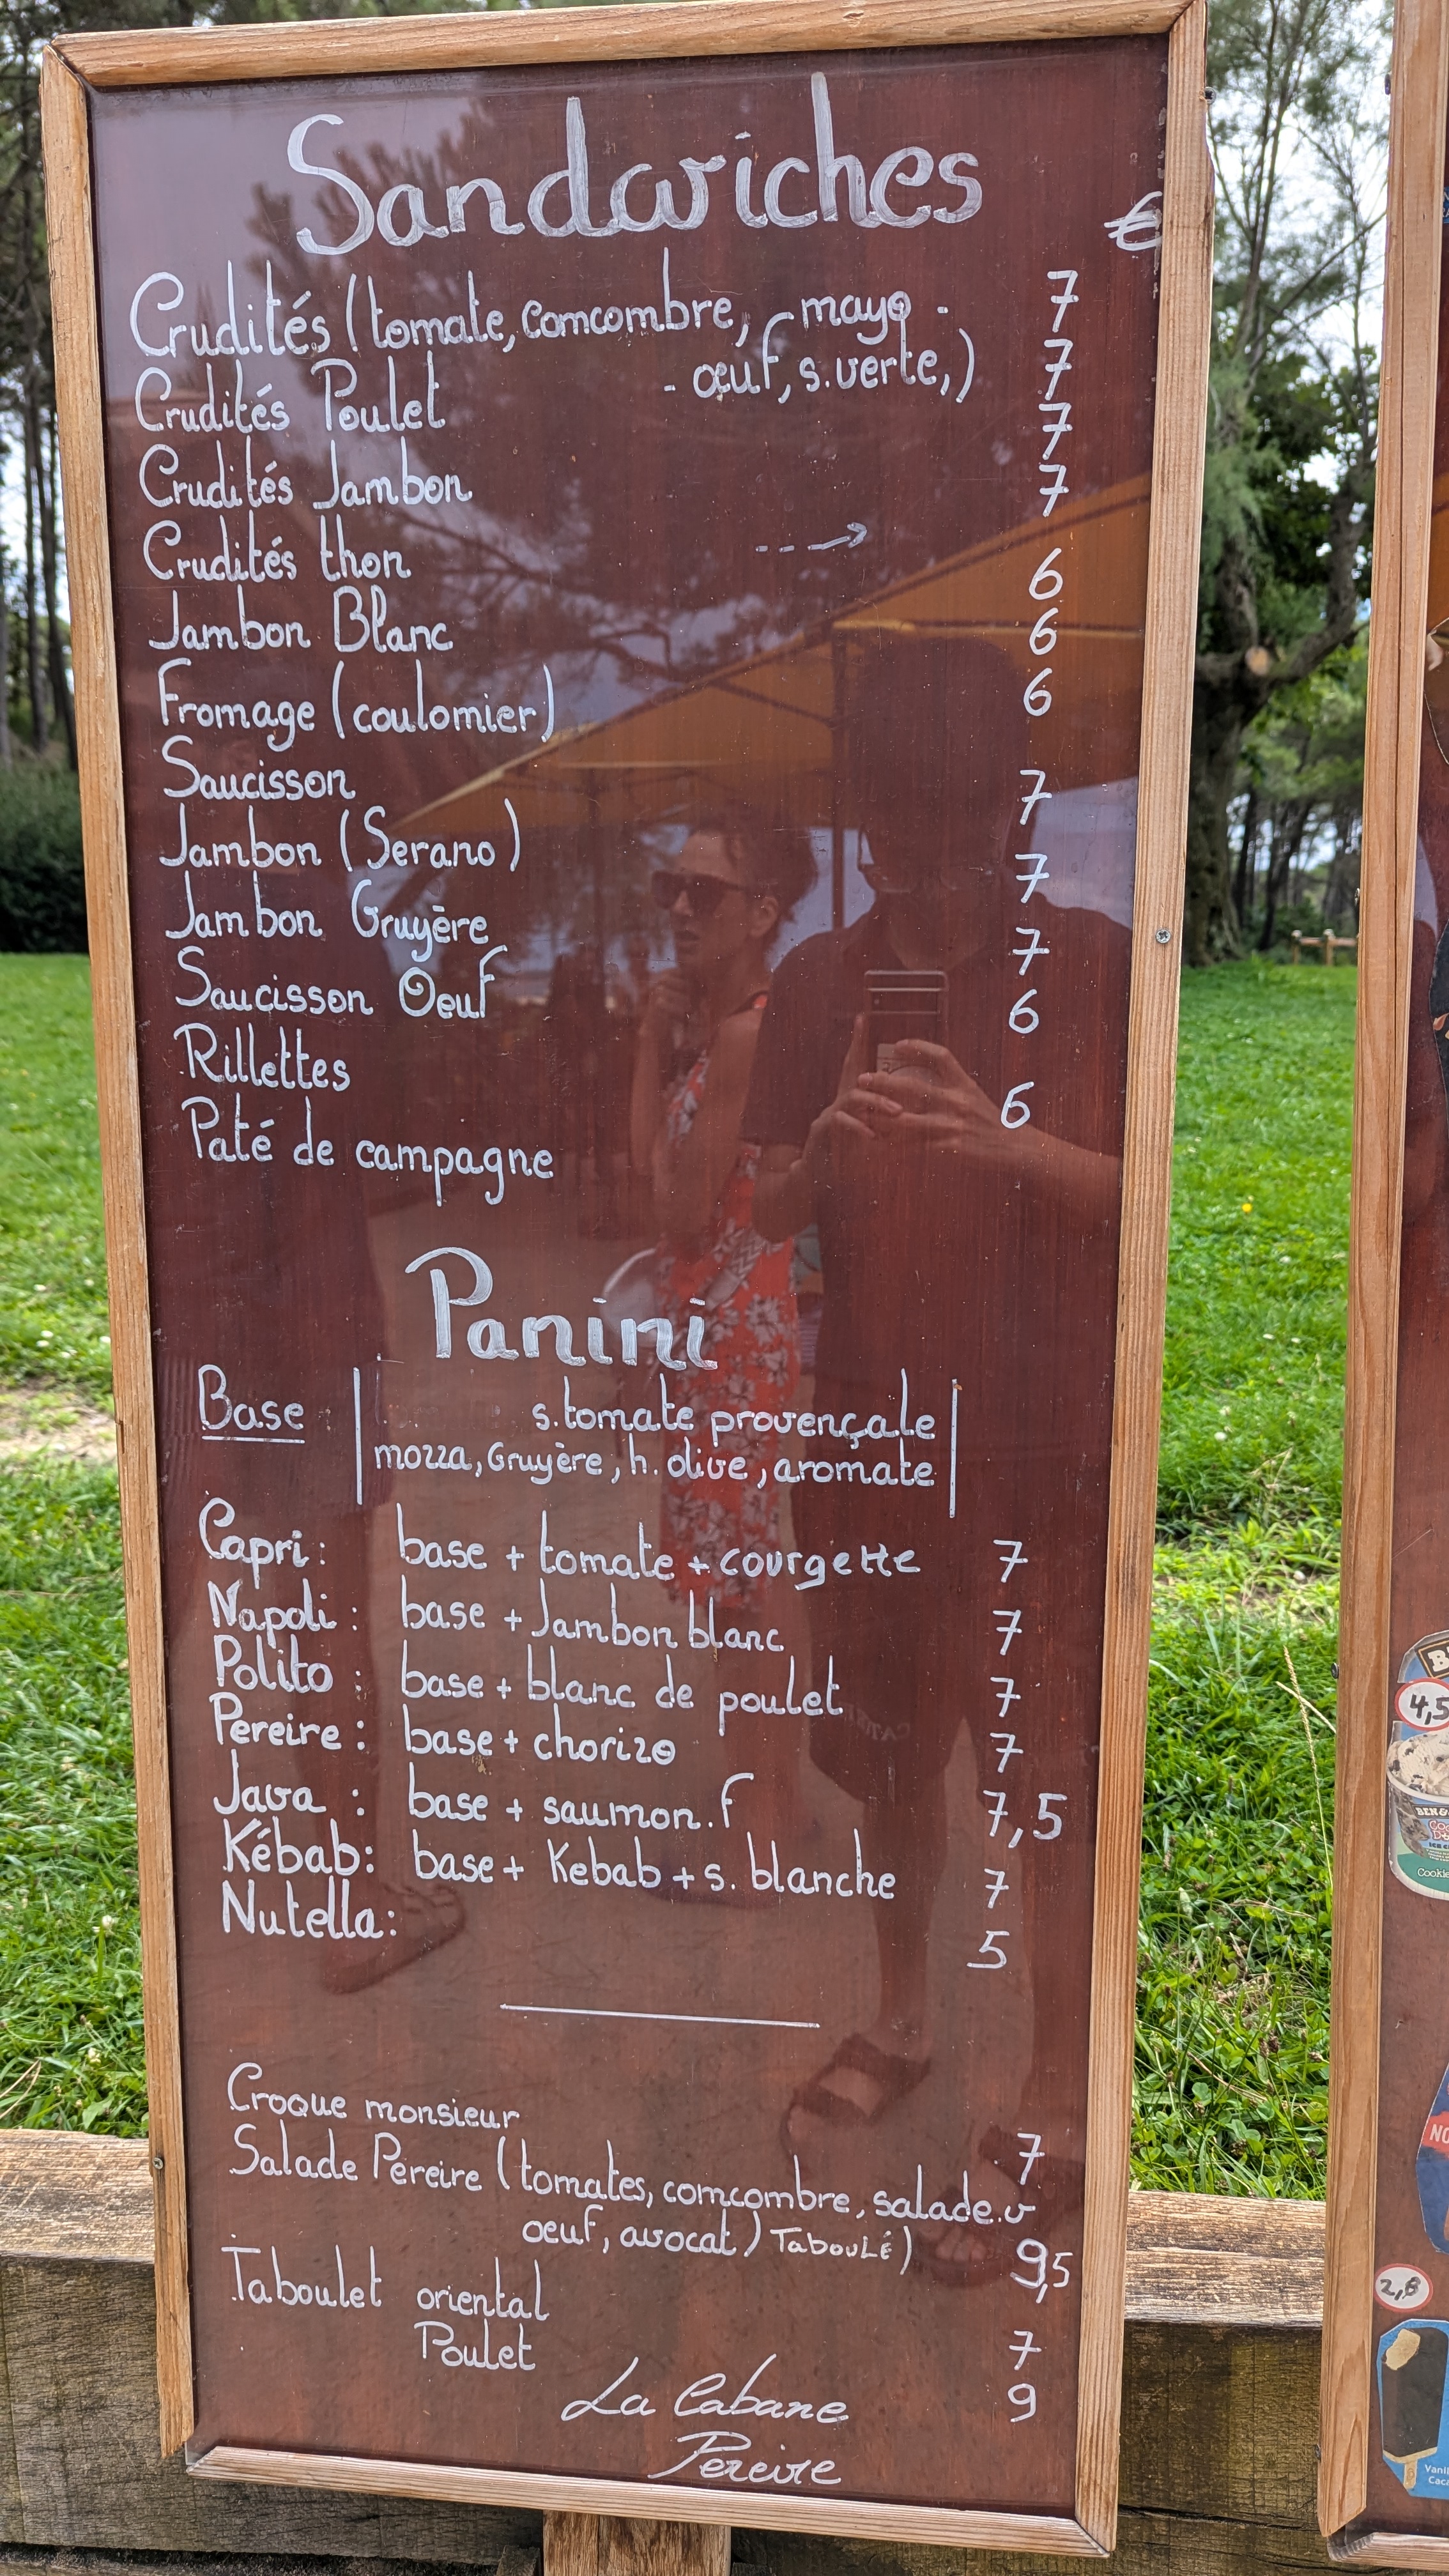 Sandwiches
€
Crudités (tomate, comcombre, mayo - 7
- œuf, s.verte,)
Crudités Poulet 7
Crudités Jambon 7
Crudités thon 7
- - →
Jambon Blanc 6
Fromage (coulomier) 6
Saucisson 6
Jambon (Serano) 7
Jambon Gruyère 7
Saucisson Oeuf 7
Rillettes 6
Paté de campagne 6
Panini
Base
s.tomate provençale
mozza, Gruyère, h. olive, aromate
Capri: base + tomate + courgette 7
Napoli: base + Jambon blanc 7
Polito: base + blanc de poulet 7
Pereire: base + chorizo 7
Java: base + saumon.f 7,5
Kébab: base + Kebab + s. blanche 7
Nutella: 5
Croque monsieur 7
Salade Pereire (tomates, comcombre, salade.v
oeuf, avocat) TabouLé) 9,5
Taboulet oriental 7
Poulet 9
La Cabane
Pereire
4,5
Cookie
2,8